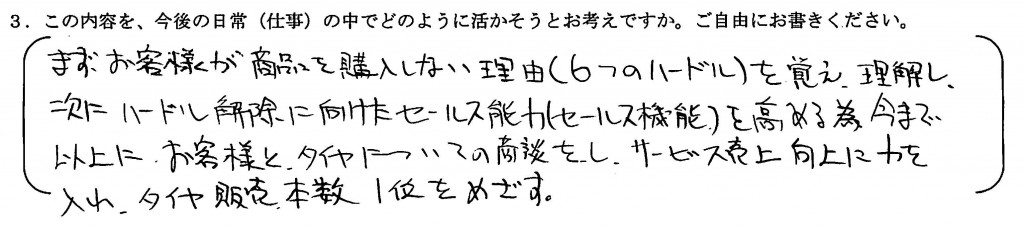 3．この内容を、今後の日常（仕事）の中でどのように活かそうとお考えですか。ご自由にお書きください。
まず、お客様が商品を購入しない理由(6つのハードル)を覚え、理解し、
次に ハードル解除に向けたセールス能力(セールス機能)を高める為、今まで
以上に、お客様と、タイヤについての商談をし、サービス売上向上に力を
入れ、タイヤ販売本数 1位をめざす。